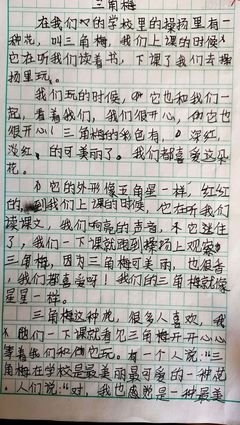 三角梅
在我们的学校里的操场里有一
种花，叫三角梅，我们上课的时候，
它在听我们读着书，下课了我们去操
场里玩。
我们玩的时候，它也和我们一
起，看着我们，我们很开心，它也
很开心！三角梅的彩色有，深红，
淡红，的可美丽了。我们都喜爱这朵
花。
它的外形像五角星一样，红红
的，我们上课的时候，它在听我们
读课文，我们响亮的声音，不它迷住
了，我们一下课就跑到操场上观察
三角梅，因为三角梅可美丽，也很香
！我们都喜爱呀！我们的三角梅就像
星星一样。
三角梅这种花，很多人喜欢，我
们一下课就看见三角梅开开心心
等着我们和它玩。有一个人说："三
角梅在学校是最美丽最可爱的一种花
。人们说："对，我也感觉是一种最美